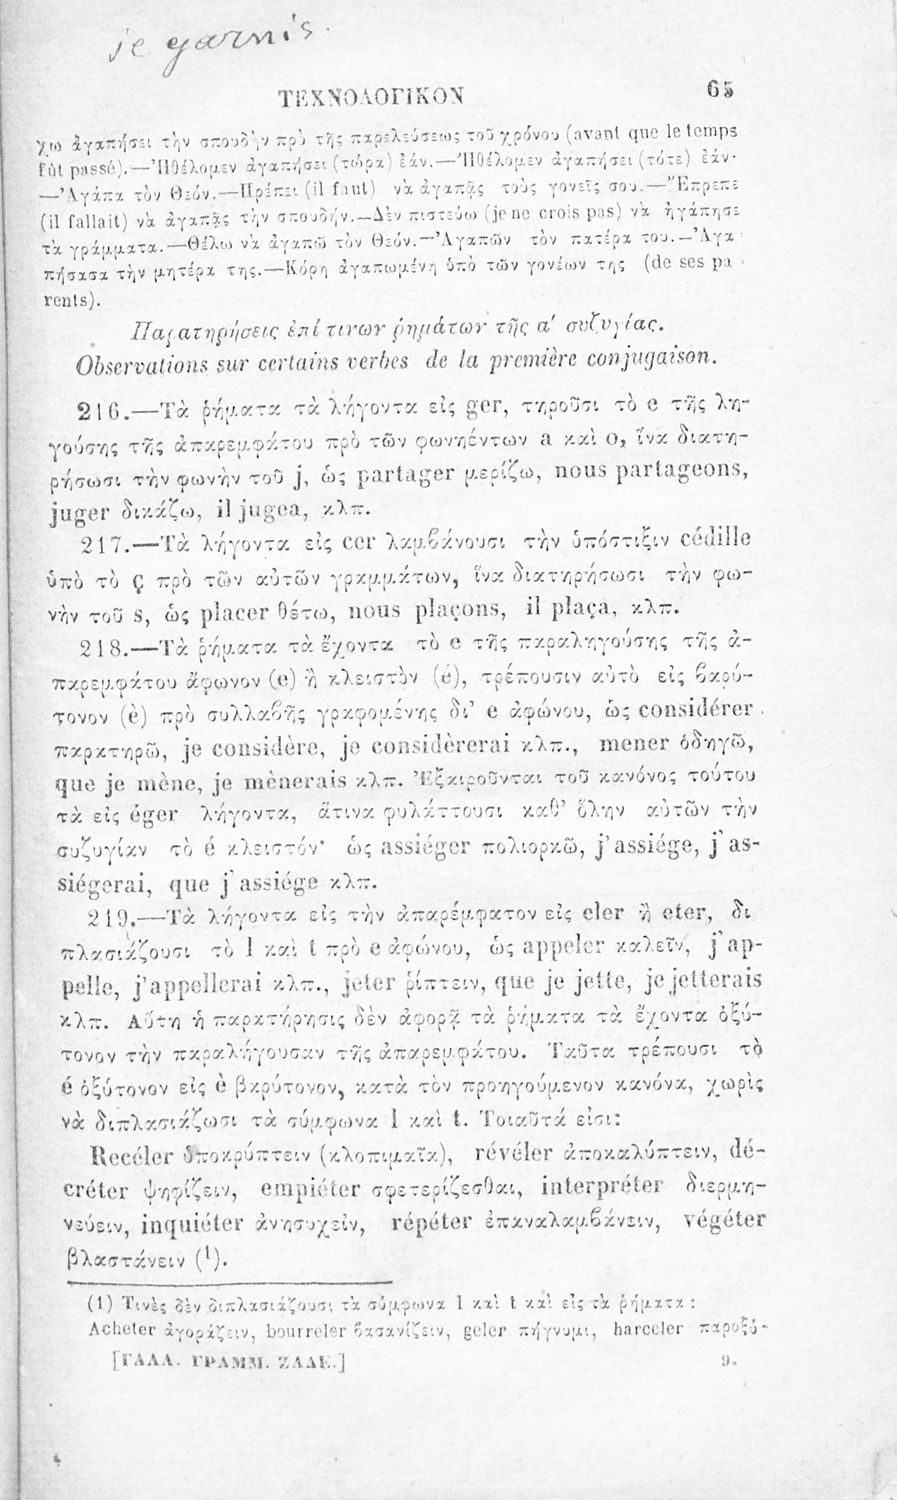 je garnis.
ΤΕΧΝΟΛΟΓΙΚΟΝ 65
χω ἀγαπήσει τὴν σπουδὴν πρὸ τῆς παρελεύσεως τοῦ χρόνου (avant que le temps
fût passé).—Ἠθέλομεν ἀγαπήσει (τώρα) ἐάν.—Ἠθέλομεν ἀγαπήσει (τότε) ἐάν·
—Ἀγάπα τὸν Θεόν.—Πρέπει (il faut) νὰ ἀγαπᾷς τοὺς γονεῖς σου.—Ἔπρεπε
(il fallait) νὰ ἀγαπᾷς τὴν σπουδήν.—Δὲν πιστεύω (je ne crois pas) νὰ ἠγάπησε
τὰ γράμματα.—Θέλω νὰ ἀγαπῶ τὸν Θεόν.—Ἀγαπῶν τὸν πατέρα του.—Ἀγα
πήσασα τὴν μητέρα της.—Κόρη ἀγαπωμένη ὑπὸ τῶν γονέων της (de ses pa
rents).
Παρατηρήσεις ἐπί τινων ῥημάτων τῆς α' συζυγίας.
Observations sur certains verbes de la première conjugaison.
216.—Τὰ ῥήματα τὰ λήγοντα εἰς ger, τηροῦσι τὸ e τῆς λη-
γούσης τῆς ἀπαρεμφάτου πρὸ τῶν φωνηέντων a καὶ o, ἵνα διατη-
ρήσωσι τὴν φωνὴν τοῦ j, ὡς partager μερίζω, nous partageons,
juger δικάζω, il jugea, κλπ.
217.—Τὰ λήγοντα εἰς cer λαμβάνουσι τὴν ὑπόστιξιν cédille
ὑπὸ τὸ ç πρὸ τῶν αὐτῶν γραμμάτων, ἵνα διατηρήσωσι τὴν φω-
νὴν τοῦ s, ὡς placer θέτω, nous plaçons, il plaça, κλπ.
218.—Τὰ ῥήματα τὰ ἔχοντα τὸ e τῆς παραληγούσης τῆς ἀ-
παρεμφάτου ἄφωνον (e) ἢ κλειστὸν (é), τρέπουσιν αὐτὸ εἰς βαρύ-
τονον (è) πρὸ συλλαβῆς γραφομένης δι' e ἀφώνου, ὡς considérer
παρατηρῶ, je considère, je considèrerai κλπ., mener ὁδηγῶ,
que je mène, je mènerais κλπ. Ἐξαιροῦνται τοῦ κανόνος τούτου
τὰ εἰς éger λήγοντα, ἅτινα φυλάττουσι καθ' ὅλην αὐτῶν τὴν
συζυγίαν τὸ é κλειστόν· ὡς assiéger πολιορκῶ, j'assiége, j'as-
siégerai, que j'assiége κλπ.
219.—Τὰ λήγοντα εἰς τὴν ἀπαρέμφατον εἰς eler ἢ eter, δι
πλασιάζουσι τὸ l καὶ t πρὸ e ἀφώνου, ὡς appeler καλεῖν, j'ap-
pelle, j'appellerai κλπ., jeter ῥίπτειν, que je jette, je jetterais
κλπ. Αὕτη ἡ παρατήρησις δὲν ἀφορᾷ τὰ ῥήματα τὰ ἔχοντα ὀξύ-
τονον τὴν παραλήγουσαν τῆς ἀπαρεμφάτου. Ταῦτα τρέπουσι τὸ
é ὀξύτονον εἰς è βαρύτονον, κατὰ τὸν προηγούμενον κανόνα, χωρὶς
νὰ διπλασιάζωσι τὰ σύμφωνα l καὶ t. Τοιαῦτά εἰσι:
Recéler ὑποκρύπτειν (κλοπιμαῖα), révéler ἀποκαλύπτειν, dé-
créter ψηφίζειν, empiéter σφετερίζεσθαι, interpréter διερμη-
νεύειν, inquiéter ἀνησυχεῖν, répéter ἐπαναλαμβάνειν, végéter
βλαστάνειν (¹).
(1) Τινὲς δὲν διπλασιάζουσι τὰ σύμφωνα l καὶ t καὶ εἰς τὰ ῥήματα :
Acheter ἀγοράζειν, bourreler βασανίζειν, geler πήγνυμι, harceler παροξύ-
[ΓΑΛΛ. ΓΡΑΜΜ. ΖΑΔΕ.] 9.